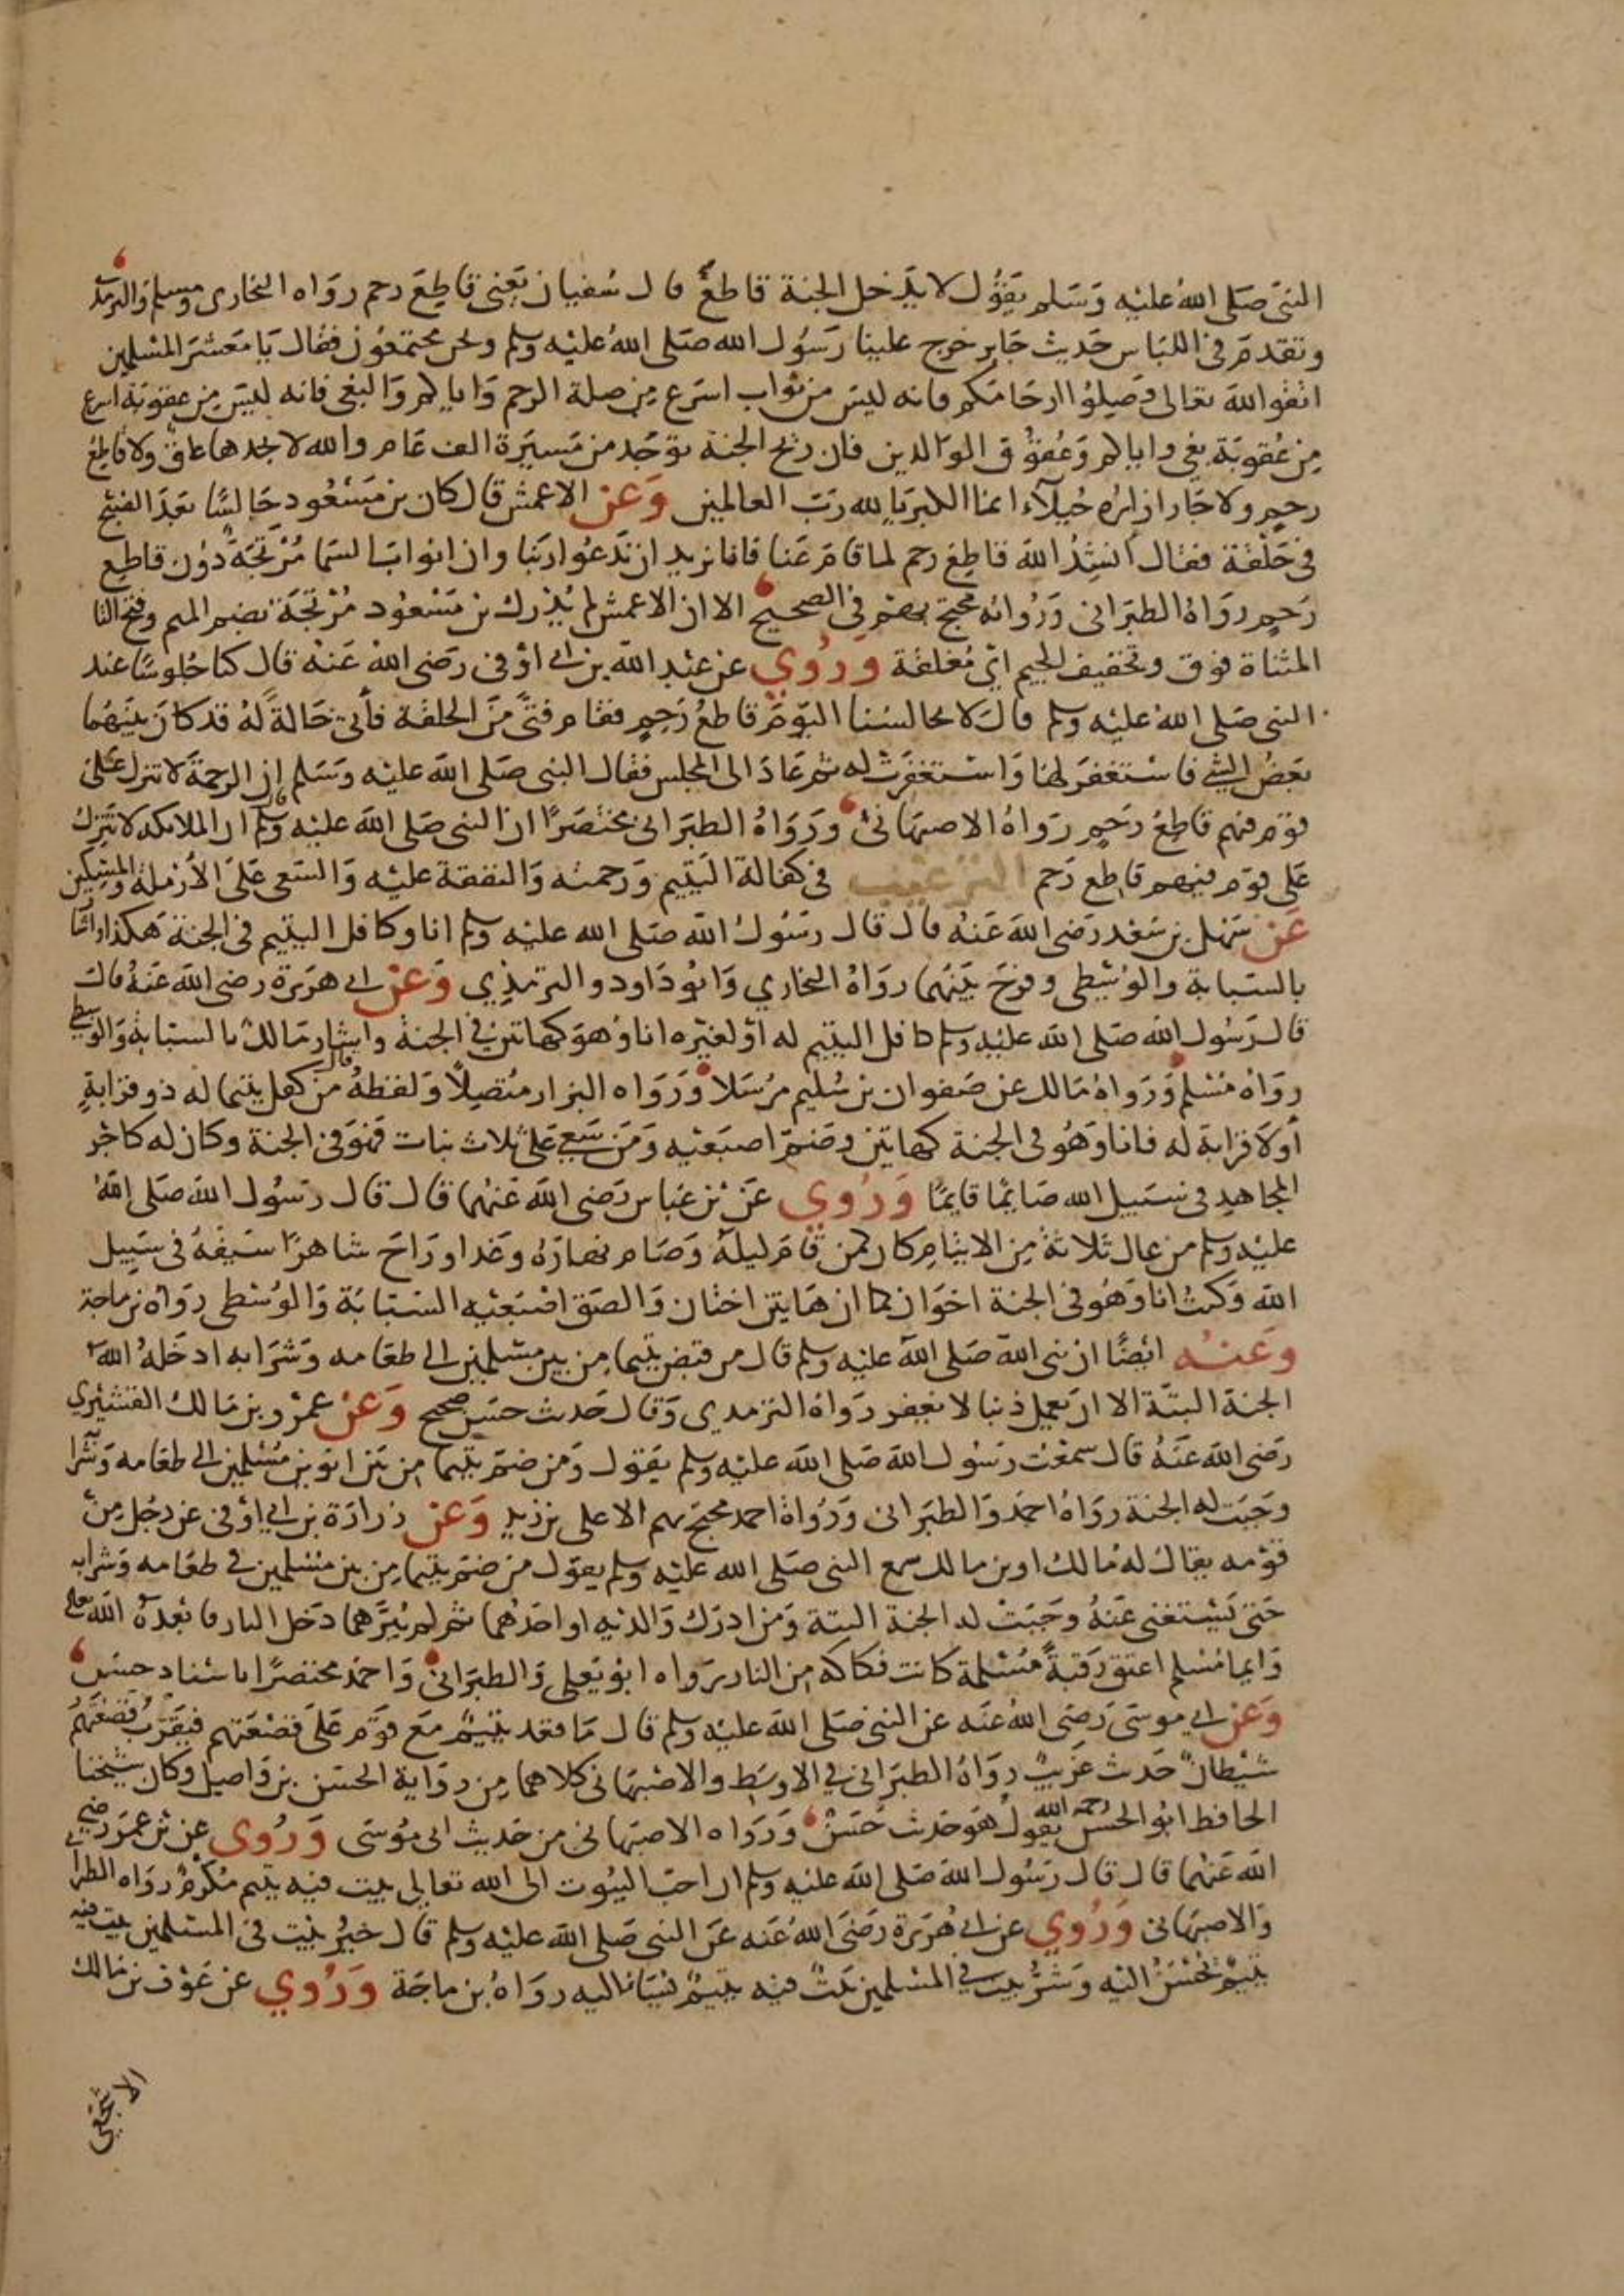 النبي صلى الله عليه وسلم يقول لا يدخل الجنة قاطع قال سفيان يعني قاطع رحم رواه البخاري ومسلم والترمذي
وتقدم في اللباس حديث جابر خرج علينا رسول الله صلى الله عليه وسلم ونحن مجتمعون فقال يا معشر المسلمين
اتقوا الله تعالى وصلوا ارحامكم فانه ليس من ثواب اسرع من صلة الرحم واياكم والبغي فانه ليس من عقوبة اسرع
من عقوبة بغي واياكم وعقوق الوالدين فان ريح الجنة توجد من مسيرة الف عام والله لا يجدها عاق ولا قاطع
رحم ولا جار ازاره خيلاء انما الكبريا لله رب العالمين وعن الاعمش قال كان بن مسعود جالسا بعد الصبح
في حلقة فقال انشد الله قاطع رحم لما قام عنا فانا نريد ان ندعو ربنا وان ابواب السما مرتجة دون قاطع
رحم رواه الطبراني ورواته محتج بهم في الصحيح الا ان الاعمش لم يدرك بن مسعود مرتجة بضم الميم وفتح التا
المثناة فوق وتخفيف الجيم اي مغلقة وروي عن عبد الله بن ابي اوفى رضي الله عنه قال كنا جلوسا عند
النبي صلى الله عليه وسلم قال لا يجالسنا اليوم قاطع رحم فقام فتى من الحلقة فأتى خالة له قد كان بينهما
بعض الشي فاستغفر لها واستغفرت له ثم عاد الى المجلس فقال النبي صلى الله عليه وسلم إن الرحمة لا تنزل على
قوم فيهم قاطع رحم رواه الاصبهاني ورواه الطبراني مختصرا ان النبي صلى الله عليه وسلم قال ان الملائكة لا تنزل
على قوم فيهم قاطع رحم الترغيب في كفالة اليتيم ورحمته والنفقة عليه والسعي على الأرملة والمسكين
عن سهل بن سعد رضي الله عنه قال قال رسول الله صلى الله عليه وسلم انا وكافل اليتيم في الجنة هكذا واشا
بالسبابة والوسطى وفرج بينهما رواه البخاري وابو داود والترمذي وعن ابي هريرة رضي الله عنه قال
قال رسول الله صلى الله عليه وسلم كافل اليتيم له او لغيره انا وهو كهاتين في الجنة واشار مالك بالسبابة والوسطى
رواه مسلم ورواه مالك عن صفوان بن سليم مرسلا ورواه البزار متصلا ولفظه قال من كفل يتيما له ذو قرابة
أو لا قرابة له فانا وهو في الجنة كهاتين وضم اصبعيه ومن سعى على ثلاث بنات فهو في الجنة وكان له كاجر
المجاهد في سبيل الله صايما قايما وروي عن بن عباس رضي الله عنهما قال قال رسول الله صلى الله
عليه وسلم من عال ثلاثة من الايتام كان كمن قام ليله وصام نهاره وغدا وراح شاهرا سيفه في سبيل
الله وكنت انا وهو في الجنة اخوان كما ان هاتين اختان والصق اصبعيه السبابة والوسطى رواه بن ماجة
وعنه ايضا ان نبي الله صلى الله عليه وسلم قال من قبض يتيما من بين مسلمين الى طعامه وشرابه ادخله الله
الجنة البتة الا ان يعمل ذنبا لا يغفر رواه الترمدي وقال حديث حسن صحيح وعن عمرو بن مالك القشيري
رضي الله عنه قال سمعت رسول الله صلى الله عليه وسلم يقول ومن ضم يتيما من بين ابوين مسلمين الى طعامه وشرا
وجبت له الجنة رواه احمد والطبراني ورواة احمد محتج بهم الا علي بن زيد وعن زرارة بن ابي اوفى عن رجل من
قومه يقال له مالك او بن مالك سمع النبي صلى الله عليه وسلم يقول من ضم يتيما من بين مسلمين في طعامه وشرابه
حتى يستغني عنه وجبت له الجنة البتة ومن ادرك والديه او احدهما ثم لم يبرهما دخل النار فابعده الله تعالى
وايما مسلم اعتق رقبة مسلمة كانت فكاكه من النار رواه ابو يعلى والطبراني واحمد مختصرا باسناد حسن
وعن ابي موسى رضي الله عنه عن النبي صلى الله عليه وسلم قال ما قعد يتيم مع قوم على قصعتهم فيقرب قصعتهم
شيطان حديث غريب رواه الطبراني في الاوسط والاصبهاني كلاهما من رواية الحسن بن واصل وكان شيخنا
الحافظ ابو الحسن رحمه الله يقول هو حديث حسن ورواه الاصبهاني من حديث ابي موسى وروي عن بن عمر رضي
الله عنهما قال قال رسول الله صلى الله عليه وسلم ان احب البيوت الى الله تعالى بيت فيه يتيم مكرم رواه الطبرا
والاصبهاني وروي عن ابي هريرة رضي الله عنه عن النبي صلى الله عليه وسلم قال خير بيت في المسلمين بيت فيه
يتيم يحسن اليه وشر بيت في المسلمين بيت فيه يتيم يسا اليه رواه بن ماجة وروي عن عوف بن مالك
الاشجعي